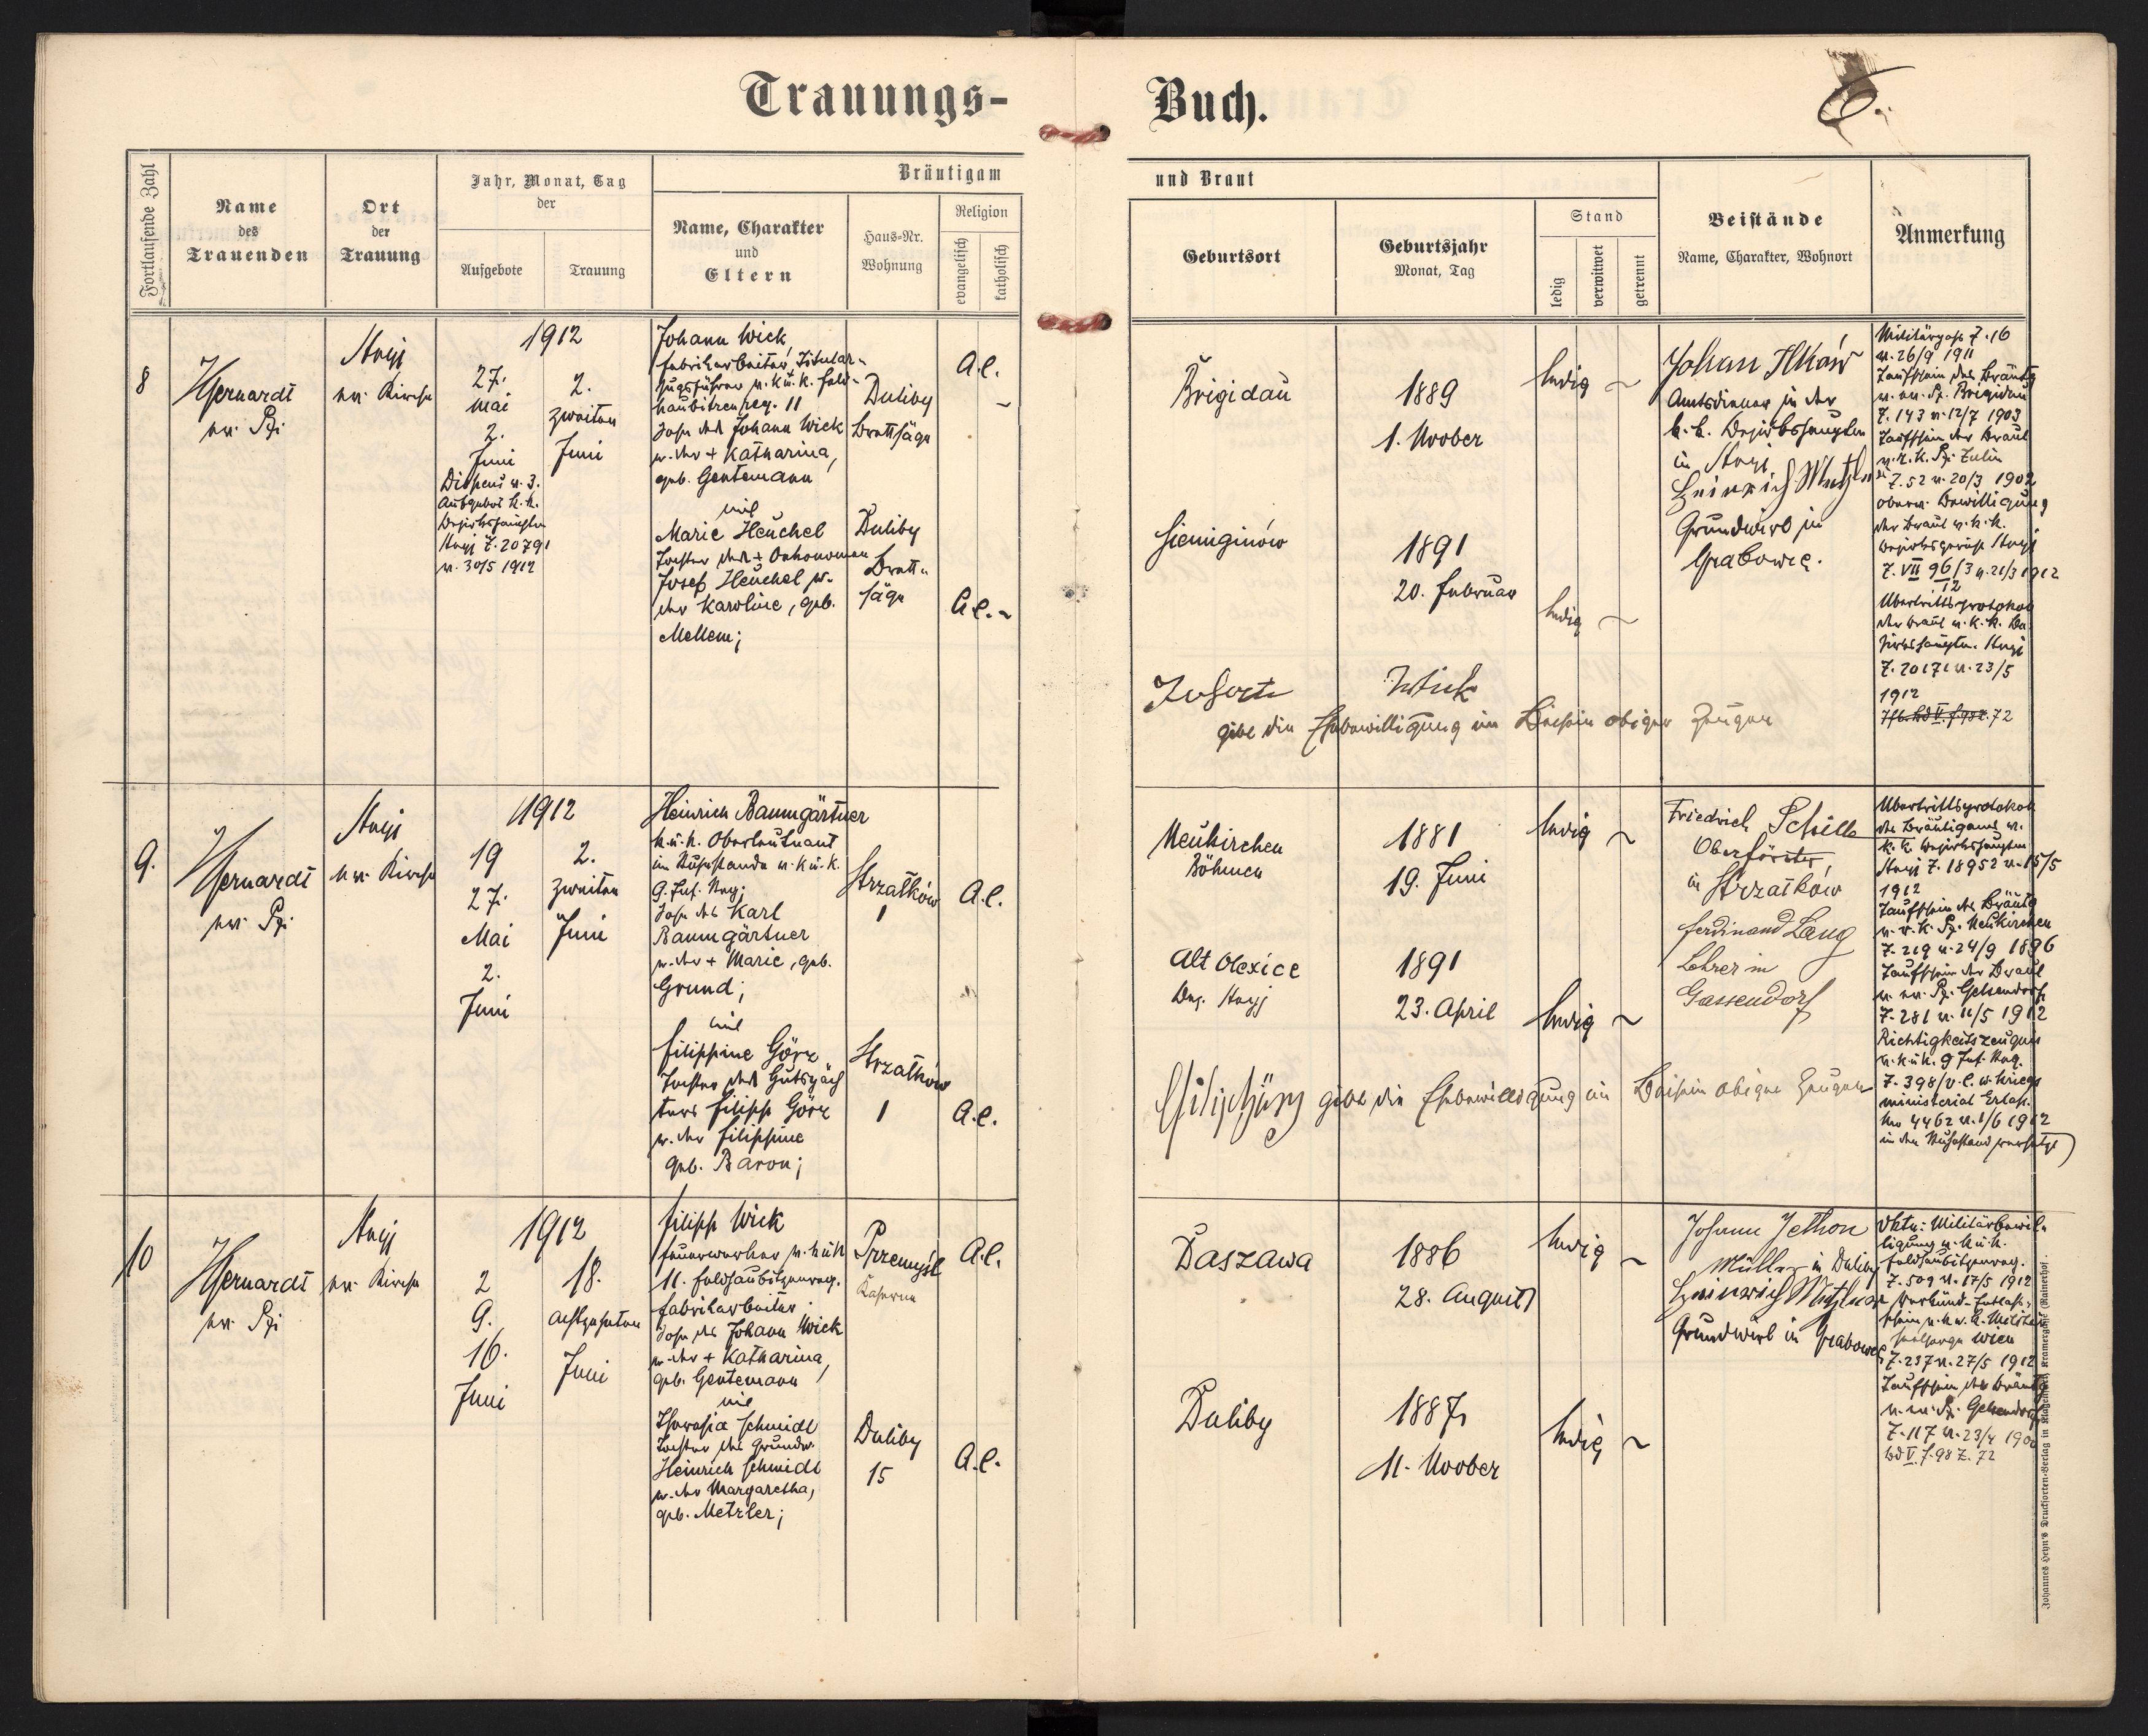 Trauungs-
Buch.
6.
Fortlaufende Zahl
Name
des
Trauenden
Ort
der
Trauung
Jahr, Monat, Tag
der
Aufgebote
Trauung
Bräutigam
Name, Charakter
und
Eltern
Haus-Nr.
Wohnung
Religion
evangelisch
katholisch
und Braut
Geburtsort
Geburtsjahr
Monat, Tag
Stand
ledig
verwitwet
getrennt
Beistände
Name, Charakter, Wohnort
Anmerkung
8
ev. Pf.
Stryj
ev. Kirche
1912
27.
Mai
2.
Juni
Dispens v. 3.
Aufgebot k.k.
Bezirkshauptm.
Stryj Z. 20791
v. 30/5 1912
2.
zweiten
Juni
Johann Wick,
Fabrikarbeiter, Titular-
Zugsführer v. k.u.k. Feld-
haubitzenreg. 11
Sohn des Johann Wick
u. der + Katharina,
geb. Gentemann
mit
Marie Heuchel
Tochter des + Oekonomen
Josef Heuchel u.
der Karoline, geb.
Mellem;
Duliby
Brettsäge
Duliby
Brett-
säge
A.C.
A.C.
Brigidau
1889
1. Novber
ledig
Siemiginów
1891
20. Februar
ledig
Johan
Amtsdiener in der
k.k. Bezirkshauptm
in Stryj
Heinrich
Grundwirt in
Grabowce.
Wick
gibt die Ehebewilligung im Beisein obiger Zeugen
v. 26/9 1911
Taufschein des Bräutg
v. ev. Pf. Brigidau
Z. 143 v. 12/7 1903
Taufschein der Braut
Z. 52 v. 20/3 1902
oberv. Bewilligung
der Braut v. k.k.
Bezirksgericht Stryj
Z. VII 96/3 v. 21/3 1912
12
Übertrittsprotokoll
der Braut v. k.k. Be-
zirkshauptm. Stryj
Z. 20171 v. 23/5
1912
9.
ev. Pf.
Stryj
ev. Kirche
1912
19
27.
Mai
2.
Juni
2.
zweiten
Juni
Heinrich Baumgärtner
k.u.k. Oberleutnant
im Ruhestande v. k.u.k.
9. Inf. Reg;
Sohn des Karl
Baumgärtner
u. der + Marie, geb.
Grund;
mit
Filippine Görz
Tochter des Gutspäch
ters Filipp Görz
u. der Filippine
geb. Baron;
Strzałków
1
Strzałków
1
A.C.
A.C.
Neukirchen
Böhmen
1881
19. Juni
ledig
Alt Olexice
Bez. Stryj
1891
23. April
ledig
Friedrich
Oberförster,
in Strzałków
Ferdinand Lang
Lehrer in
Gassendorf
gibt die Ehebewilligung im Beisein obiger Zeugen
Übertrittsprotokoll
des Bräutigams v.
k.k. Bezirkshauptm
Stryj Z. 18952 v. 15/5
1912
Taufschein des Bräutg
Neukirchen
Z. 219 v. 24/9 1896
Taufschein der Braut
v. ev. Pf. Gelsendorf
Z. 281 v. 11/5 1912
v. k.u.k. 9 Inf. Reg.
ministerial Erlass
No 4462 v. 1/6 1912
in den Ruhestand versetzt)
10
ev. Pf.
Stryj
ev. Kirche
1912
2
9.
16.
Juni
18.
achtzehnten
Juni
Filipp Wick
Feuerwerker v. k.u.k
11. Feldhaubitzenreg.
Fabrikarbeiter
Sohn des Johann Wick
u. der + Katharina,
geb. Gentemann
mit
Theresia Schmidt
Tochter des Grundw.
Heinrich Schmidt
u. der Margaretha,
geb. Metzler;
Przemyśl
Kaserne
Duliby
15
A.C.
A.C.
Daszawa
1886
28. August
ledig
Duliby
1887
11. Novber
ledig
Johann Jethon
Müller in Duliby
Heinrich
Grundwirt in Grabowce
Militärbewil-
ligung v. k.u.k.
Feldhaubitzenreg.
Z. 509 v. 17/5 1912
Wien
Z. 237 v. 27/5 1912
Taufschein des Bräutg
v. ev. Pf. Gelsendorf
Z. 117 v. 23/4
Bd V. f. 98 Z. 72